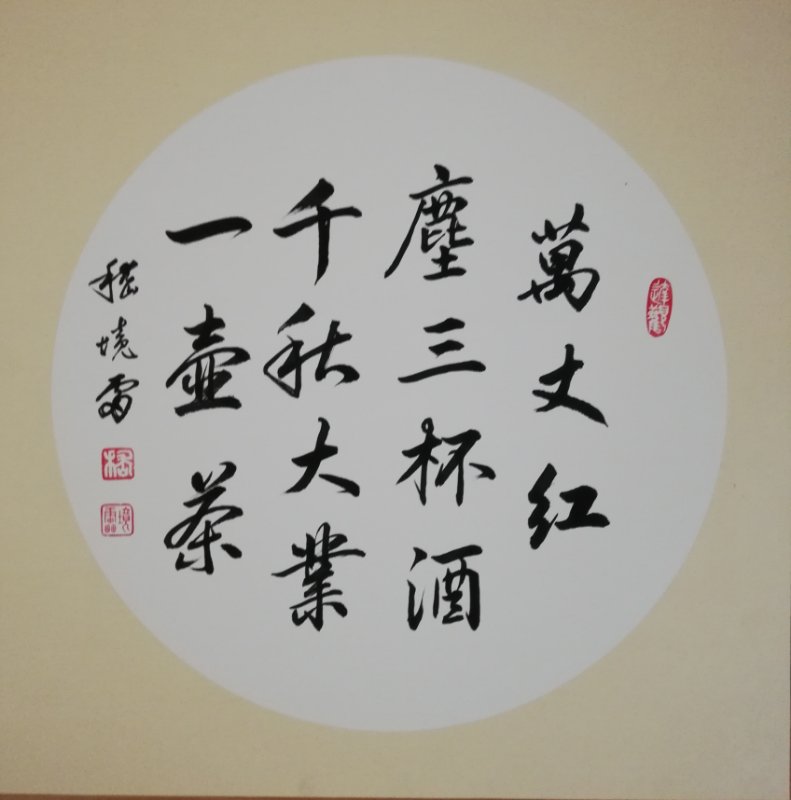 達觀
萬丈红
塵三杯酒
千秋大業
一壺茶
境雷